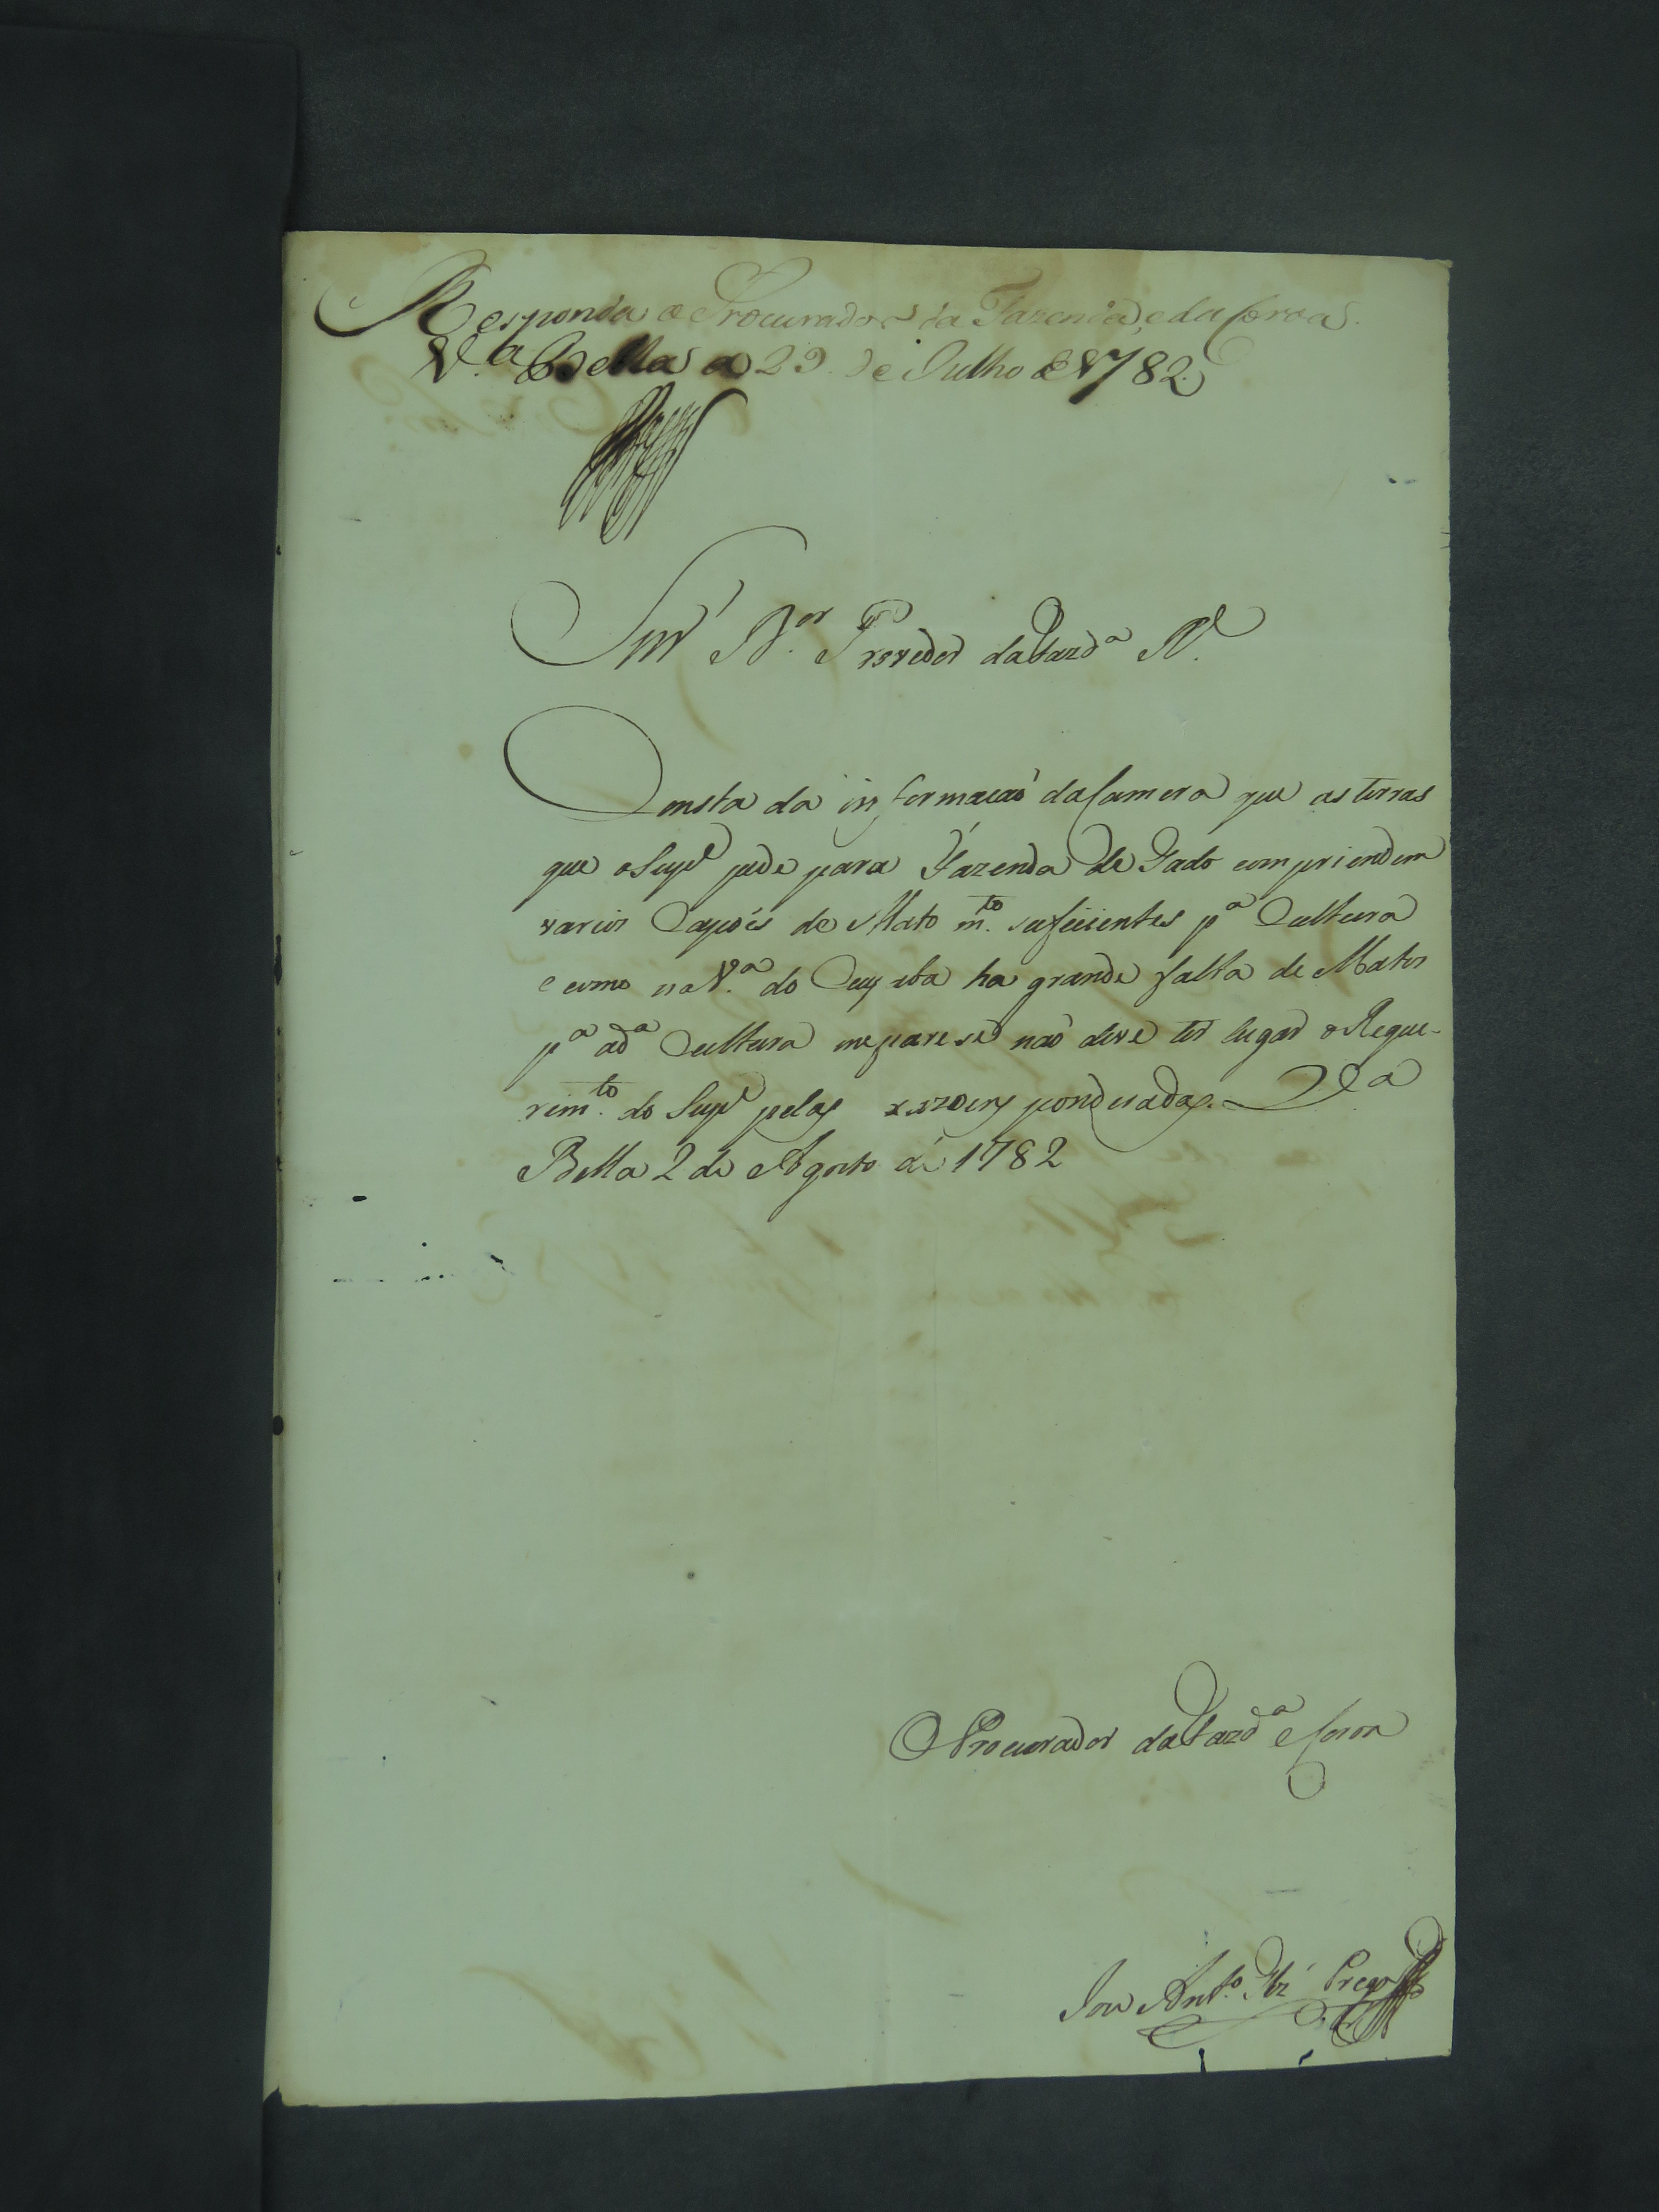 Responda o Procurador da Fazenda, e da Coroa.
V.ª Bella a 29 de Julho de 1782.
Snr' D.or Provedor da Fazd.ª R.l
Consta da informaçaõ da Camera que as terras
que o Sup.e pede para Fazenda de Gado compriendem
varios Capoés de Mato m.to suficientes p.ª Cultura
e como na V.ª do Cuyaba ha grande falta de Matos
p.ª a d.ª Cultura me parese naõ deve ter lugar o Reque-
rim.to do Sup.e pelas razoens ponderadas. V.ª
Bella 2 de Agosto de 1782
O Procurador da Fazd.ª e Coroa
Joze Ant.o